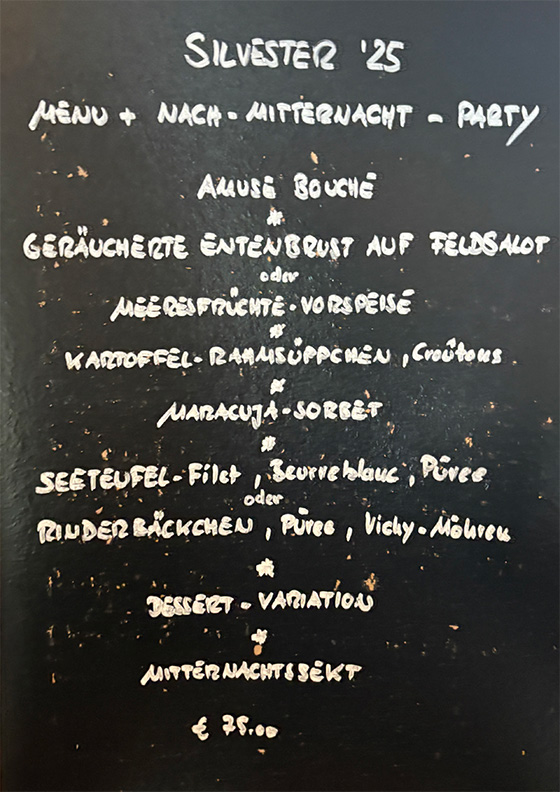 SILVESTER '25
MENU + NACH-MITTERNACHT-PARTY
AMUSE BOUCHE
*
GERÄUCHERTE ENTENBRUST AUF FELDSALAT
oder
MEERESFRÜCHTE-VORSPEISE
*
KARTOFFEL-RAHMSÜPPCHEN, Croûtons
*
MARACUJA-SORBET
*
SEETEUFEL-Filet, Beurre blanc, Püree
oder
RINDERBÄCKCHEN, Püree, Vichy-Möhren
*
DESSERT-VARIATION
*
MITTERNACHTSSEKT
€ 75.00